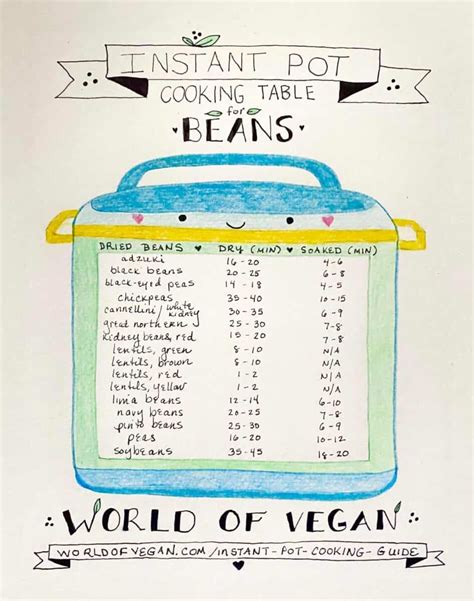 INSTANT POT
COOKING TABLE
for
BEANS
DRIED BEANS ♥ DRY (MIN) ♥ SOAKED (MIN)
adzuki 16-20 4-6
black beans 20-25 6-8
black-eyed peas 14-18 4-5
chickpeas 35-40 10-15
cannellini/white kidney 30-35 6-9
great northern 25-30 7-8
kidney beans, red 15-20 7-8
lentils, green 8-10 N/A
lentils, brown 8-10 N/A
lentils, red 1-2 N/A
lentils, yellow 1-2 N/A
lima beans 12-14 6-10
navy beans 20-25 7-8
pinto beans 25-30 6-9
peas 16-20 10-12
soybeans 35-45 18-20
WORLD OF VEGAN
WORLDOFVEGAN.COM/INSTANT-POT-COOKING-GUIDE